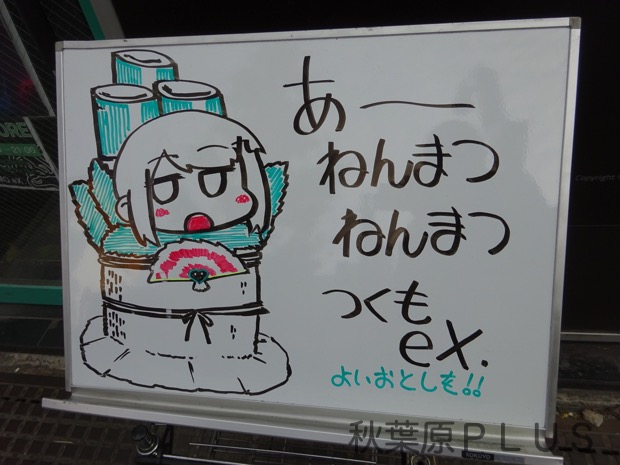 あー
ねんまつ
ねんまつ
つくも
eX.
よいおとしを!!
秋葉原PLUS